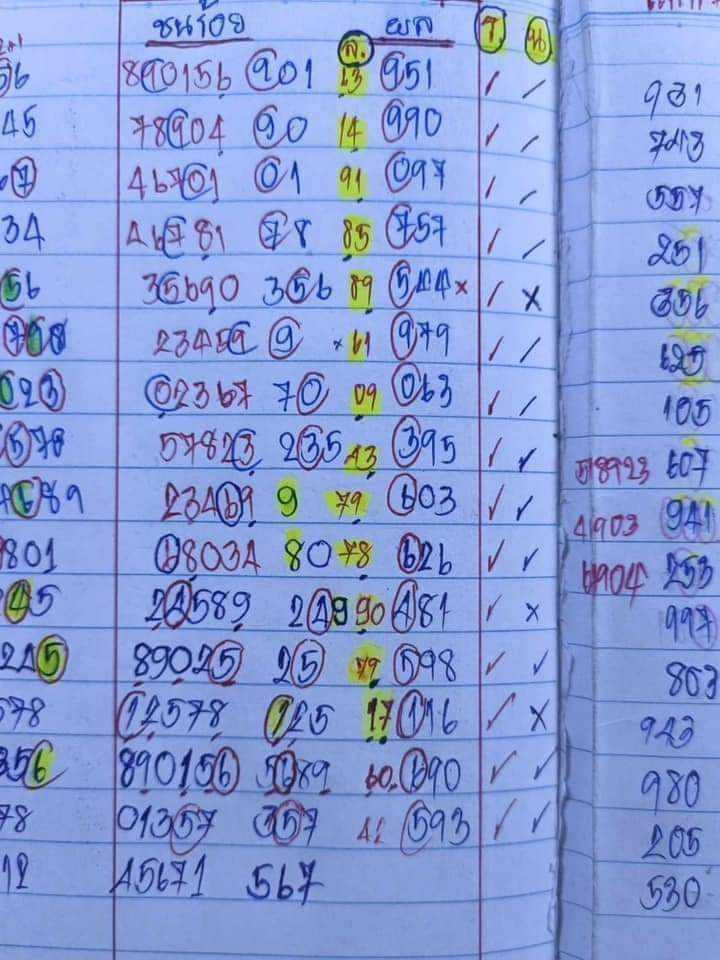 ชนร้อย ผล
ล. ร. น
56 890156 901 63 951 / / 931
45 78904 90 14 990 / / 743
67 46701 01 91 097 / / 557
34 46781 78 85 757 / / 251
56 35690 356 89 544 × / × 356
798 23459 9 × 61 979 / / 625
023 02367 70 09 063 / / 105
578 57823 235 43 395 ✓ ✓ 58923 607
689 23469 9 79 603 ✓ ✓ 4903 941
801 68034 80 78 626 ✓ ✓ 6904 253
245 24589 249 90 481 ✓ × 997
245 89025 25 79 598 ✓ ✓ 803
578 12578 125 17 116 ✓ × 943
356 890156 5689 60. 690 ✓ ✓ 980
78 01357 357 593 ✓ ✓ 205
12 45671 567 530